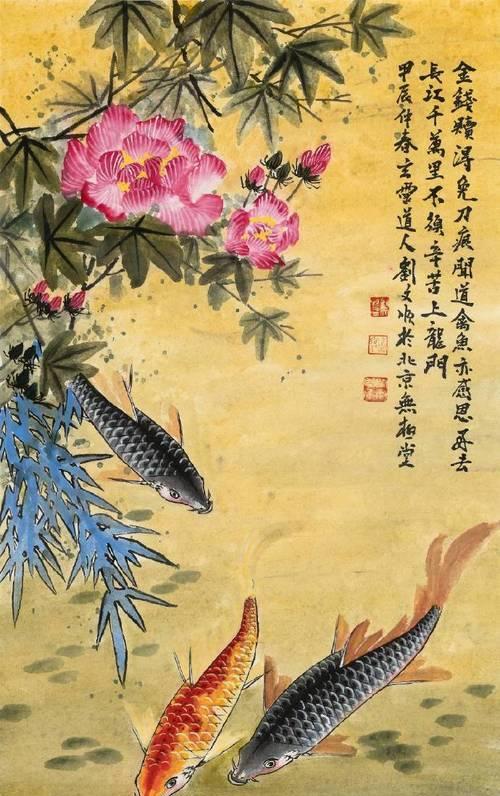 金錢贖淂免刀痕聞道禽魚亦感恩再去
長江千萬里不須辛苦上龍門
甲辰仲春玄靈道人劉文順於北京無相堂